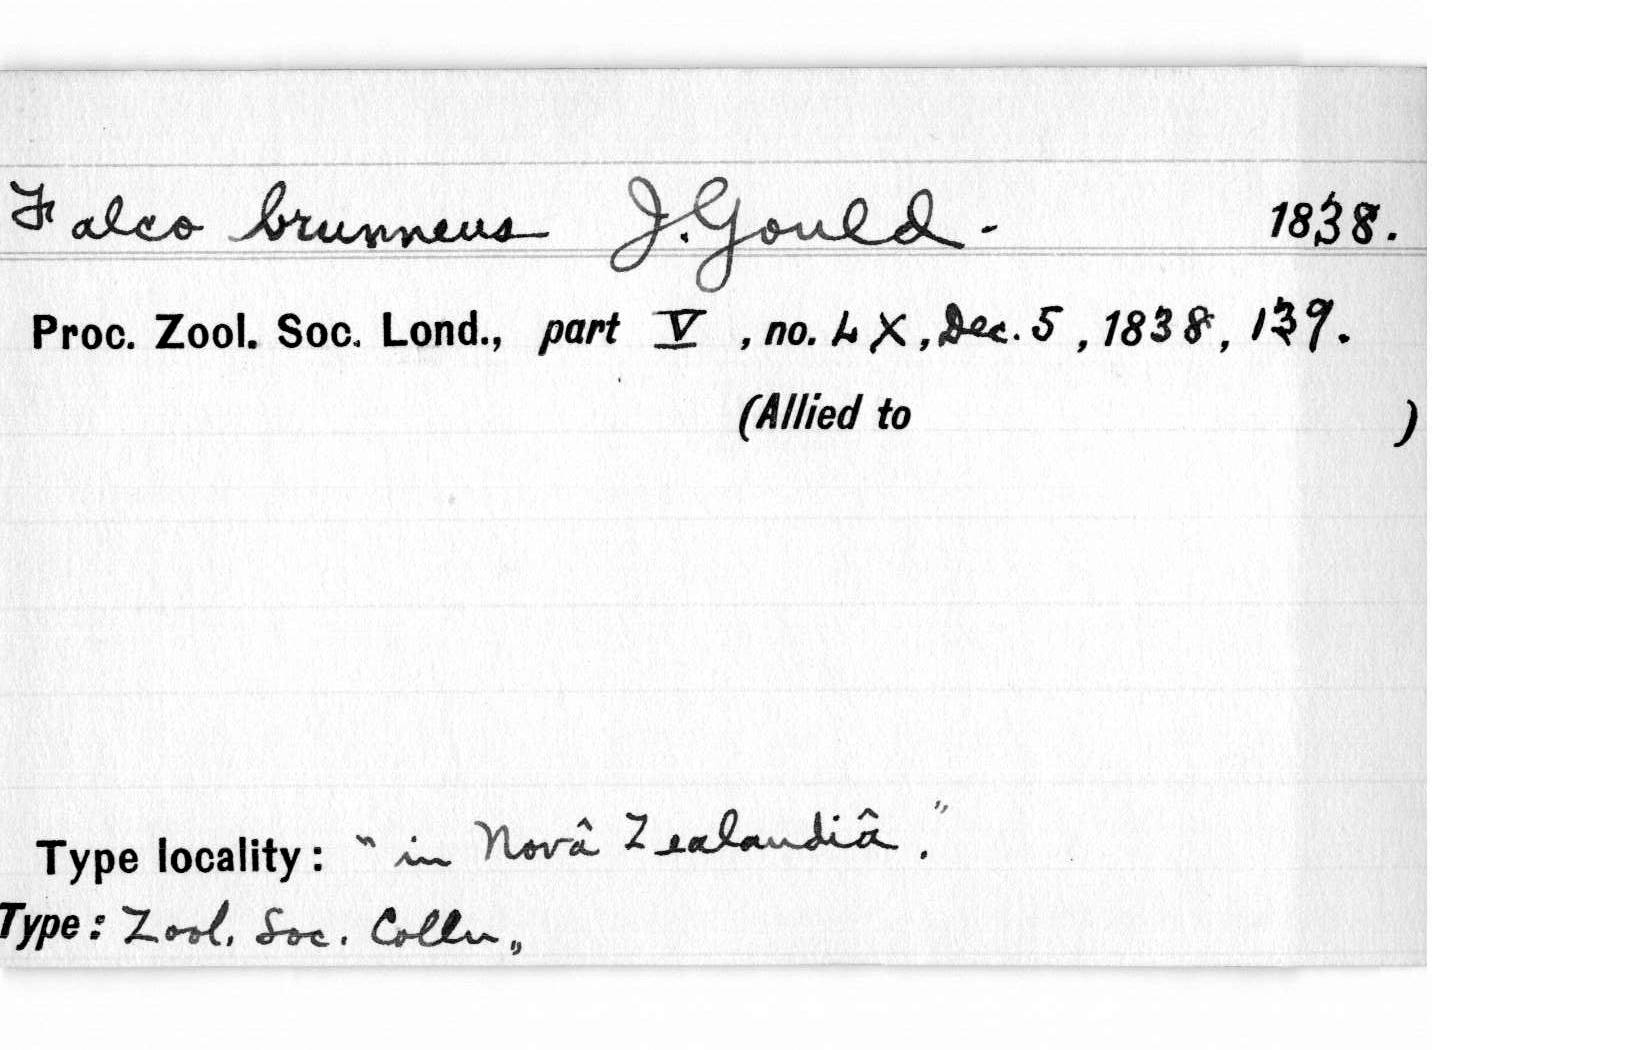 Falco brunneus J. Gould - 1838.
Proc. Zool. Soc. Lond., part V, no. LX, Dec. 5, 1838, 139.
(Allied to )
Type locality: "in Novâ Zealandiâ."
Type: Zool. Soc. Colln.,